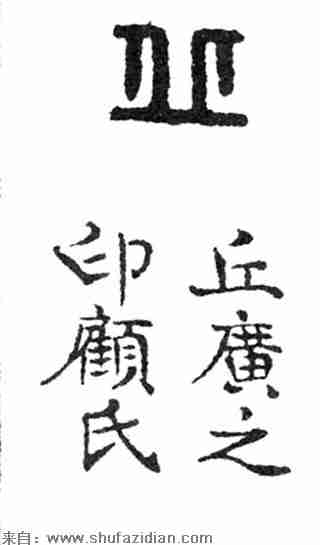 丘
丘廣之
印顧氏
来自：www.shufazidian.com